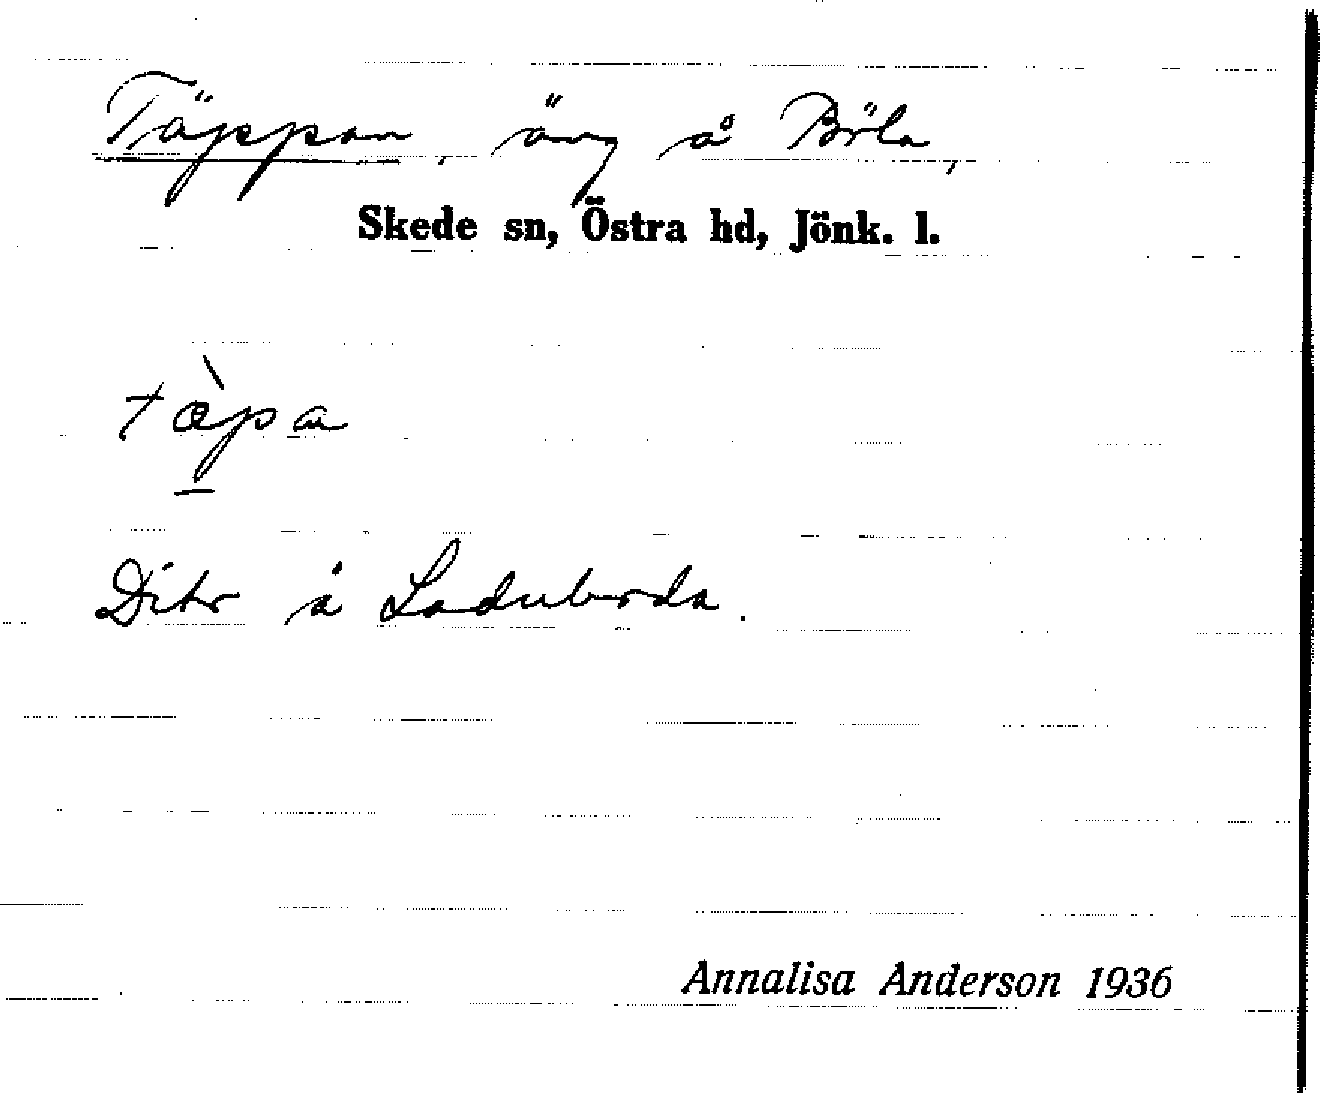 Täppan, äng å Böla,
Skede sn, Östra hd, Jönk. l.
tæ̀pa
Dito å Laduborda.
Annalisa Anderson 1936